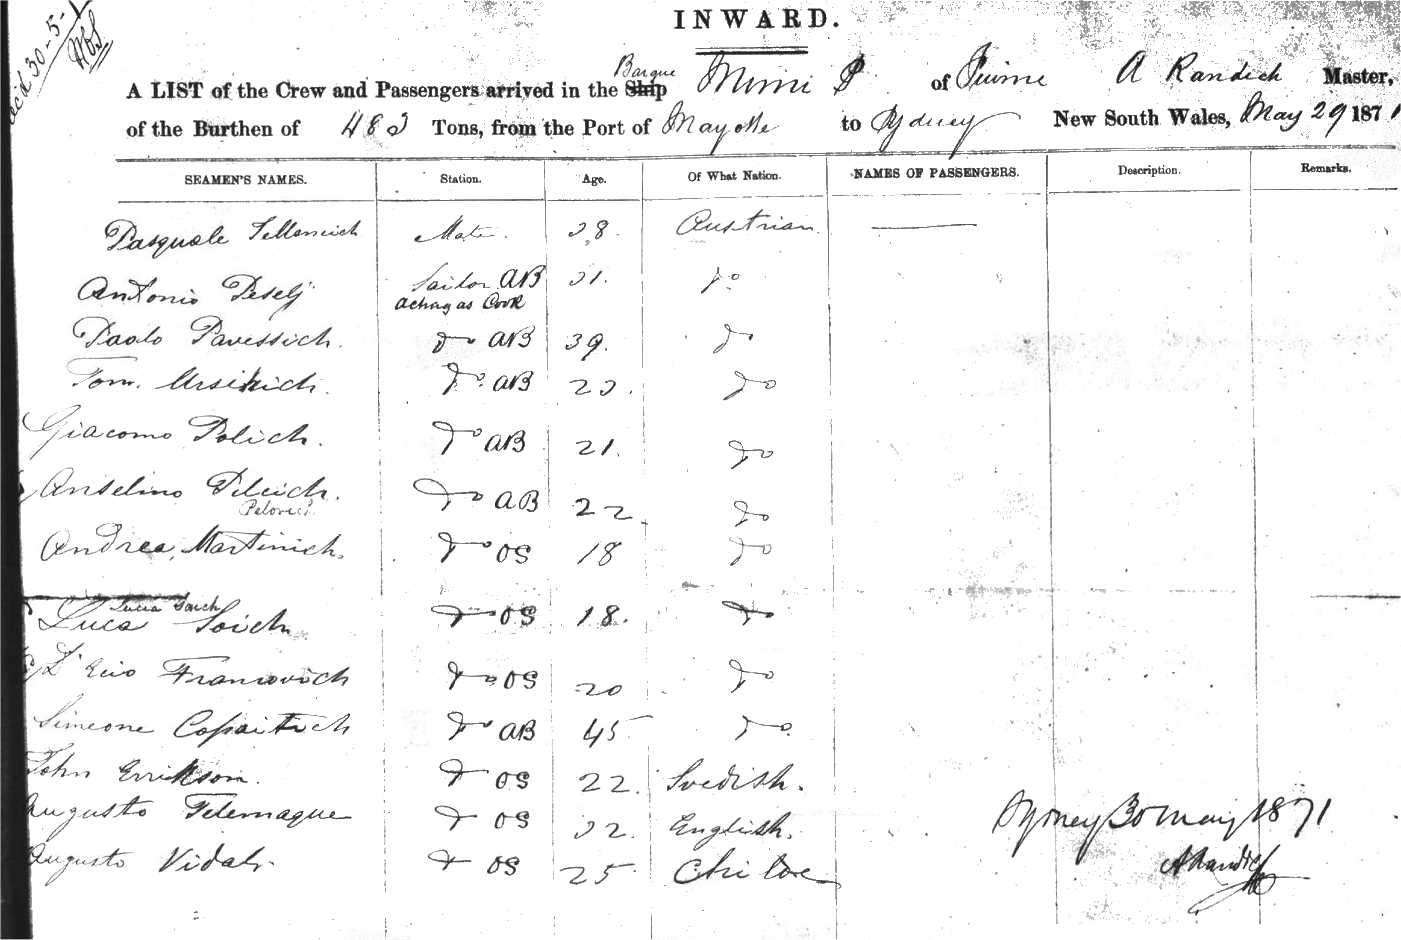 INWARD.
30-5-
Barque
A LIST of the Crew and Passengers arrived in the Ship Mimi P of Fiume A Randich Master,
of the Burthen of 483 Tons, from the Port of Mayotte to Sydney New South Wales, May 29 1871
SEAMEN'S NAMES. Station. Age. Of What Nation. NAMES OF PASSENGERS. Description. Remarks.
Pasquale Mate. 28. Austrian
Antonio Sailor AB 31. Do
acting as Cook
Paolo Pavessich. Do AB 39. Do
Tom. Ursinich. Do. AB 22. Do
Giacomo Polich. Do AB 21. Do
Anselmo Pilcich. Do AB 22. Do
Pelovich
Andrea Martinich. Do OS 18 Do
Lucia Soich
Luca Soich Do OS 18. Do
Francovich Do OS 20 Do
Simeone Copaitich Do AB 45 Do.
John Errikson. Do OS 22. Swedish.
Augusto Telemaque Do OS 32. English.
Augusto Vidal. Do OS 25. Chiloe
Sydney 30 May 1871
A Randich